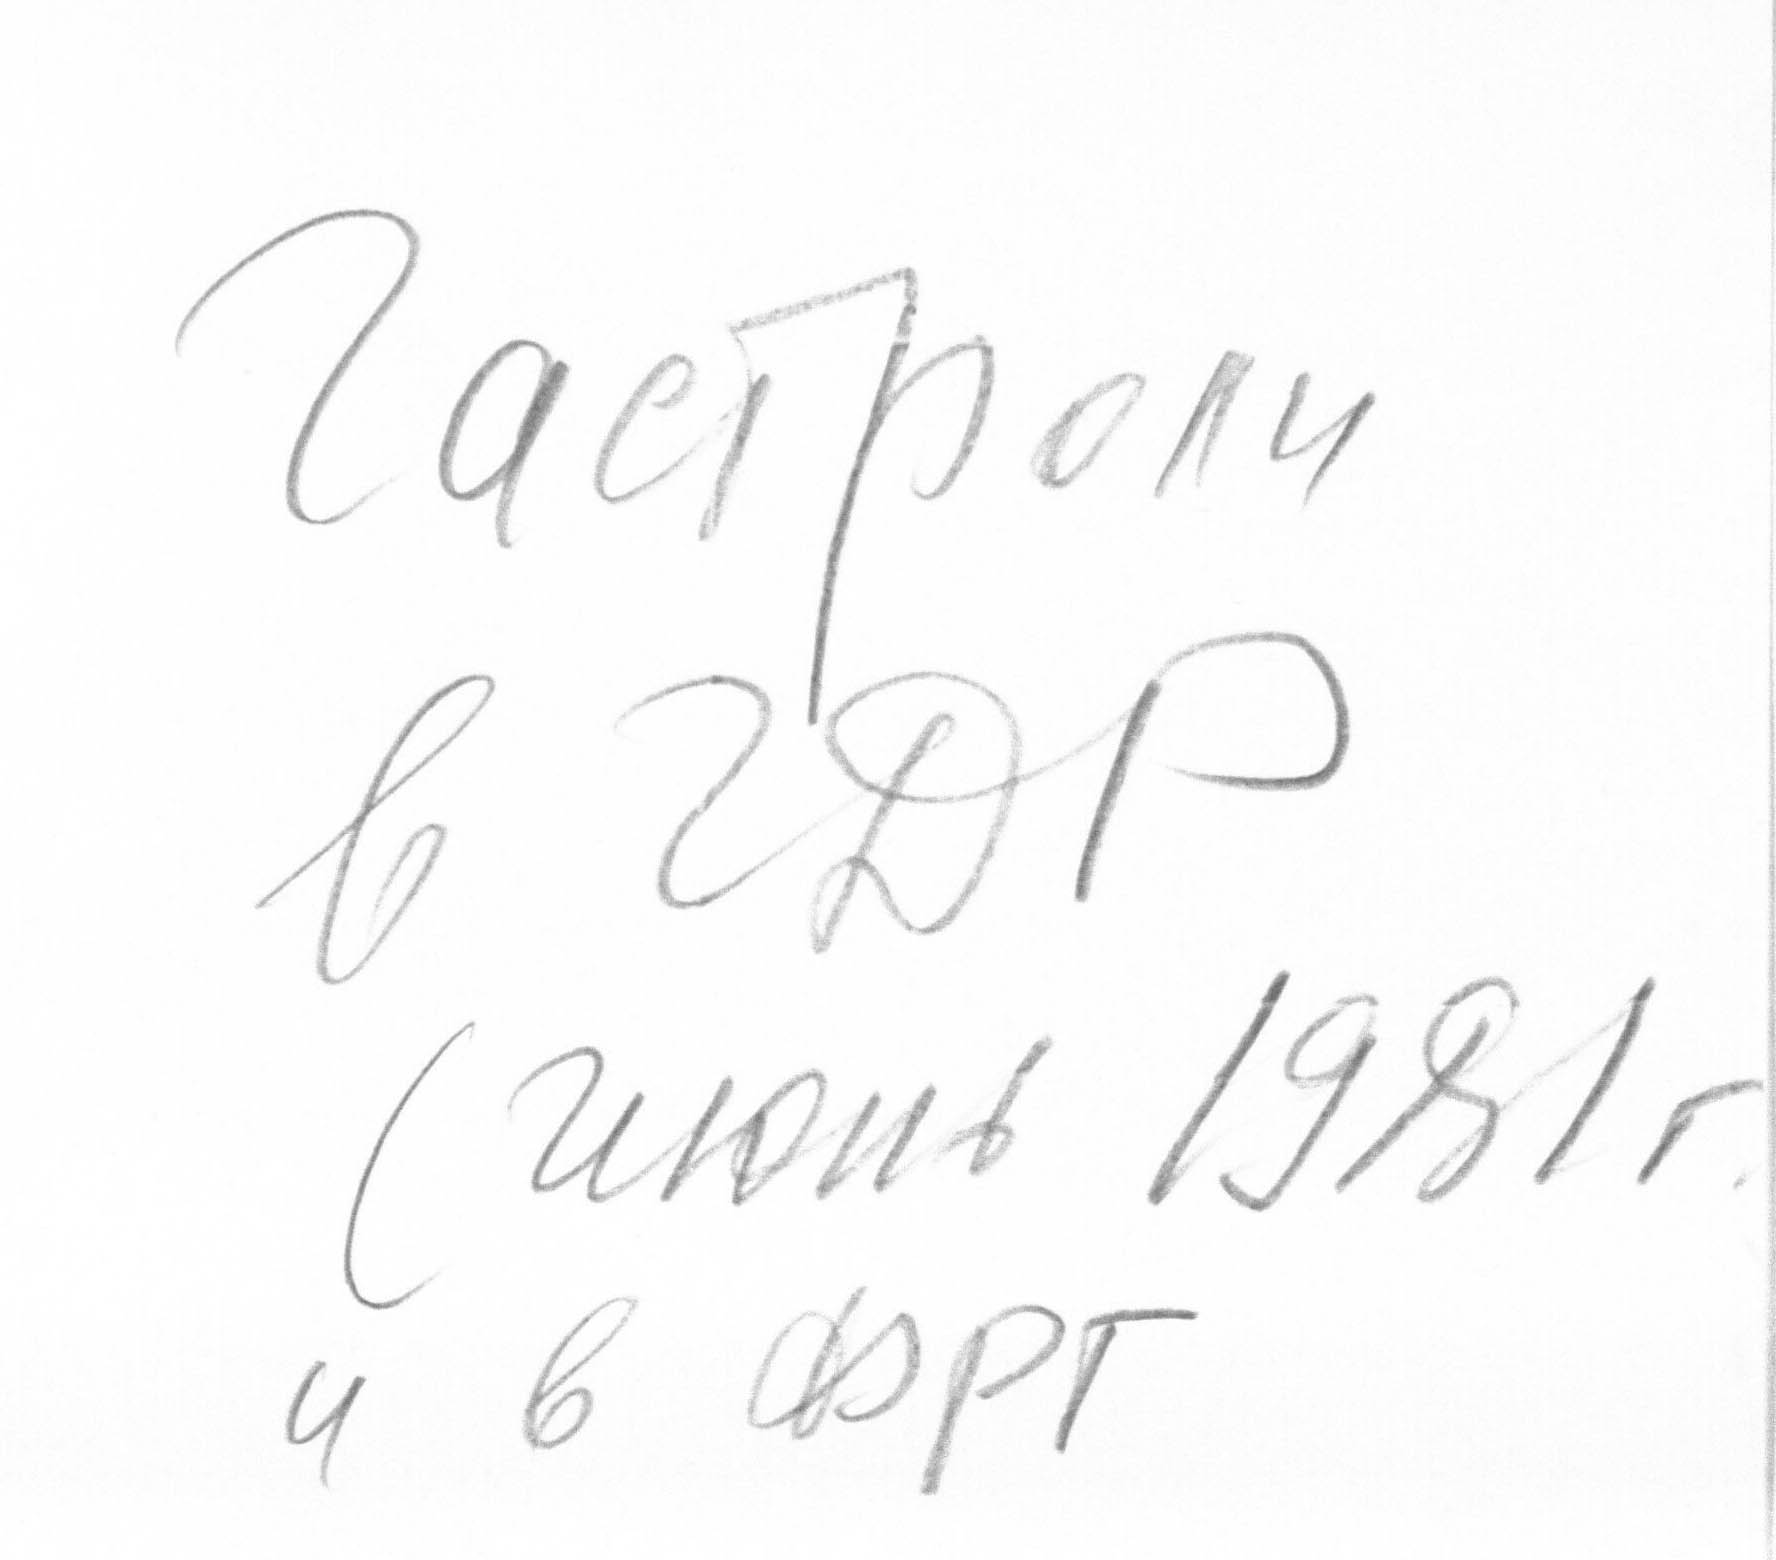 Гастроли
в ГДР
(июнь 1981 г.
и в ФРГ